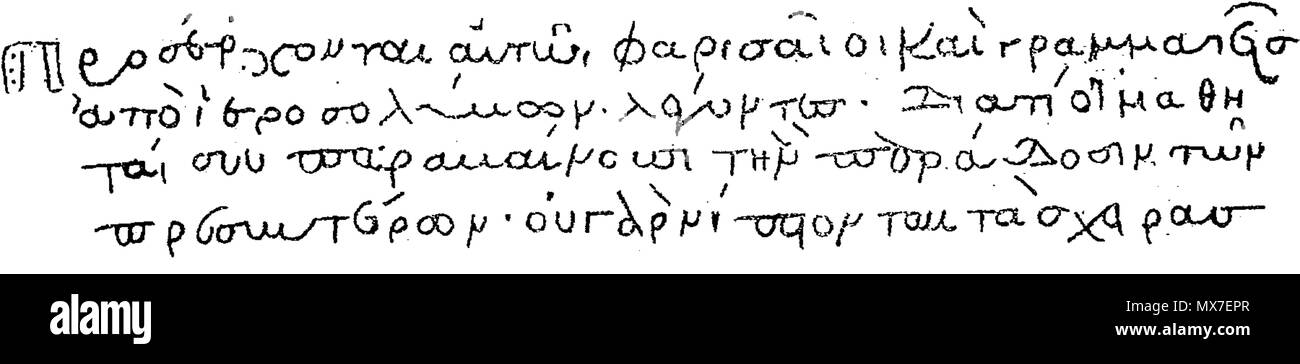 Προσέρχονται αὐτῶ, φαρισαῖοι καὶ γραμματεῖσ
ἀπὸ ἱεροσολύμων. λέγοντεσ. Διατί οἱ μαθη
ταί σου παραβαίνουσι τὴν παράδοσιν τῶν
πρεσβυτέρων. οὐ γὰρ νίπτονται τὰσ χεῖρασ
alamy
Image ID: MX7EPR
www.alamy.com